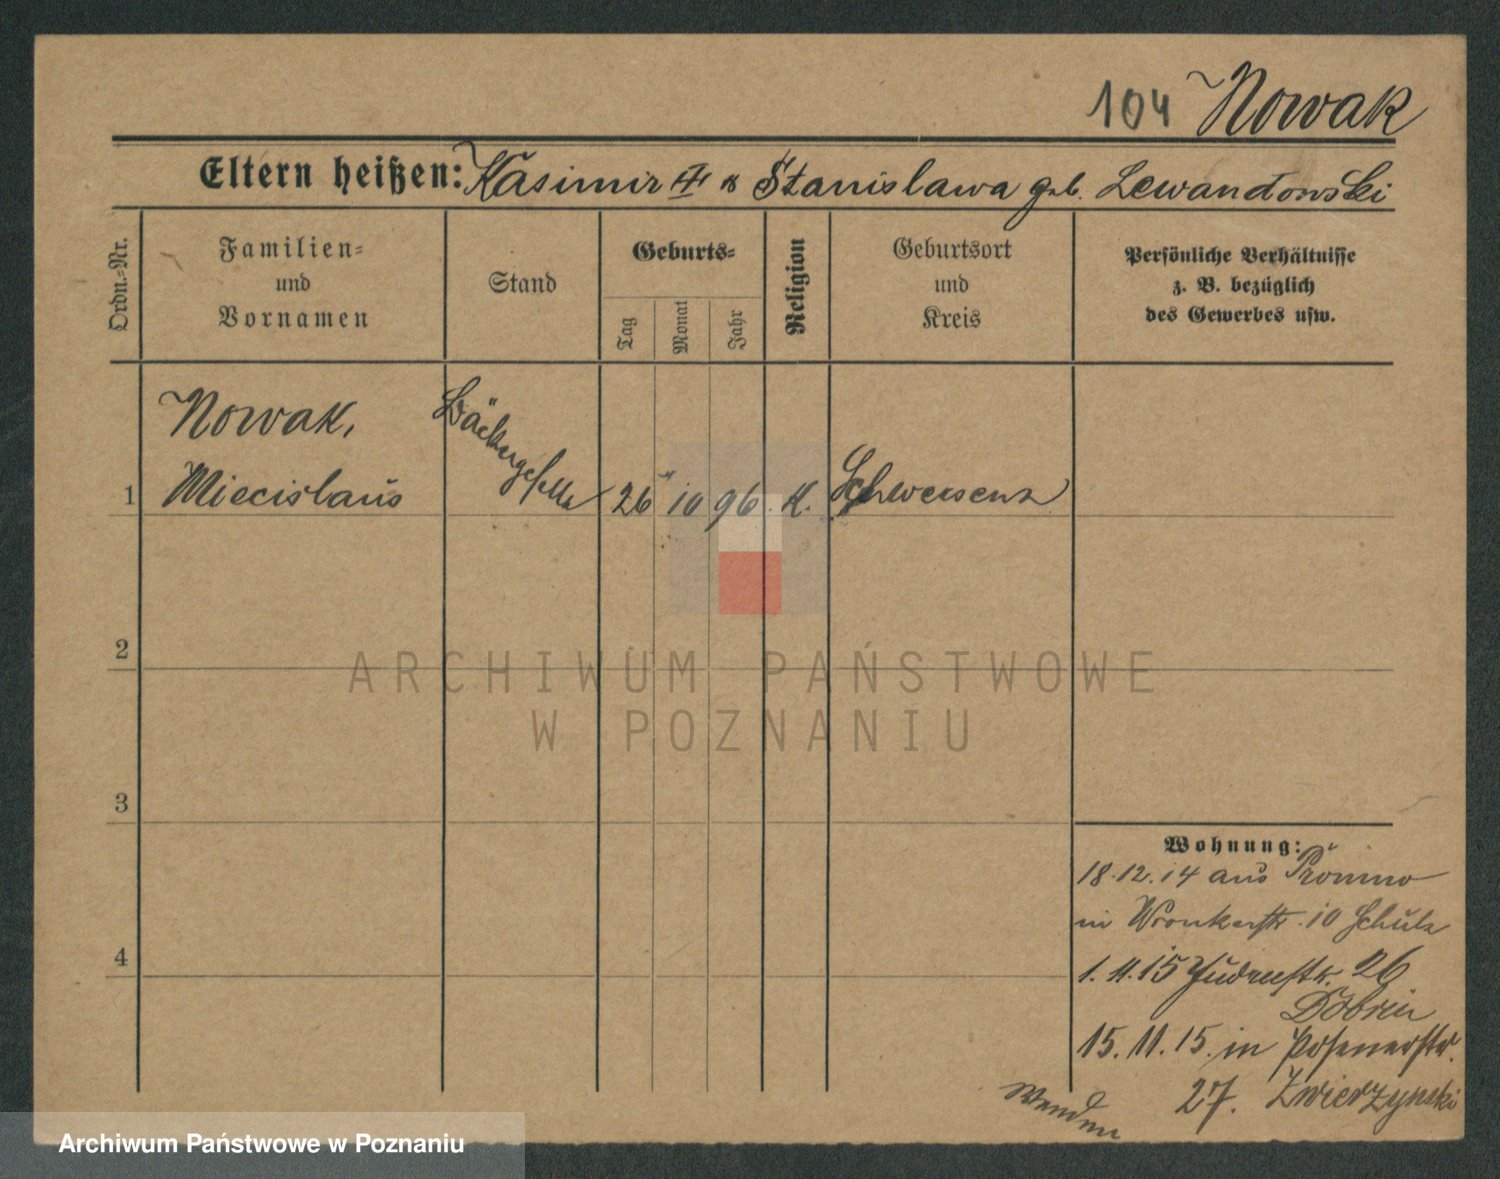 104 Nowak
Eltern heißen: Kasimir & Stanislawa geb. Lewandowski
Ordn.-Nr.
Familien-
und
Vornamen
Stand
Geburts-
Tag
Monat
Jahr
Religion
Geburtsort
und
Kreis
Persönliche Verhältnisse
z. B. bezüglich
des Gewerbes usw.
Nowak,
Miecislaus
Bäckergeselle
1 26 10 96 K. Schwersenz
2
3
4
Wohnung:
18.12.14 aus Promno
in Wronkerstr. 10 Schulz
1.11.15 Judenstr. 26
15.11.15. in Posenerstr.
27. Zwierzynski
Wenden
ARCHIWUM PAŃSTWOWE
W POZNANIU
Archiwum Państwowe w Poznaniu